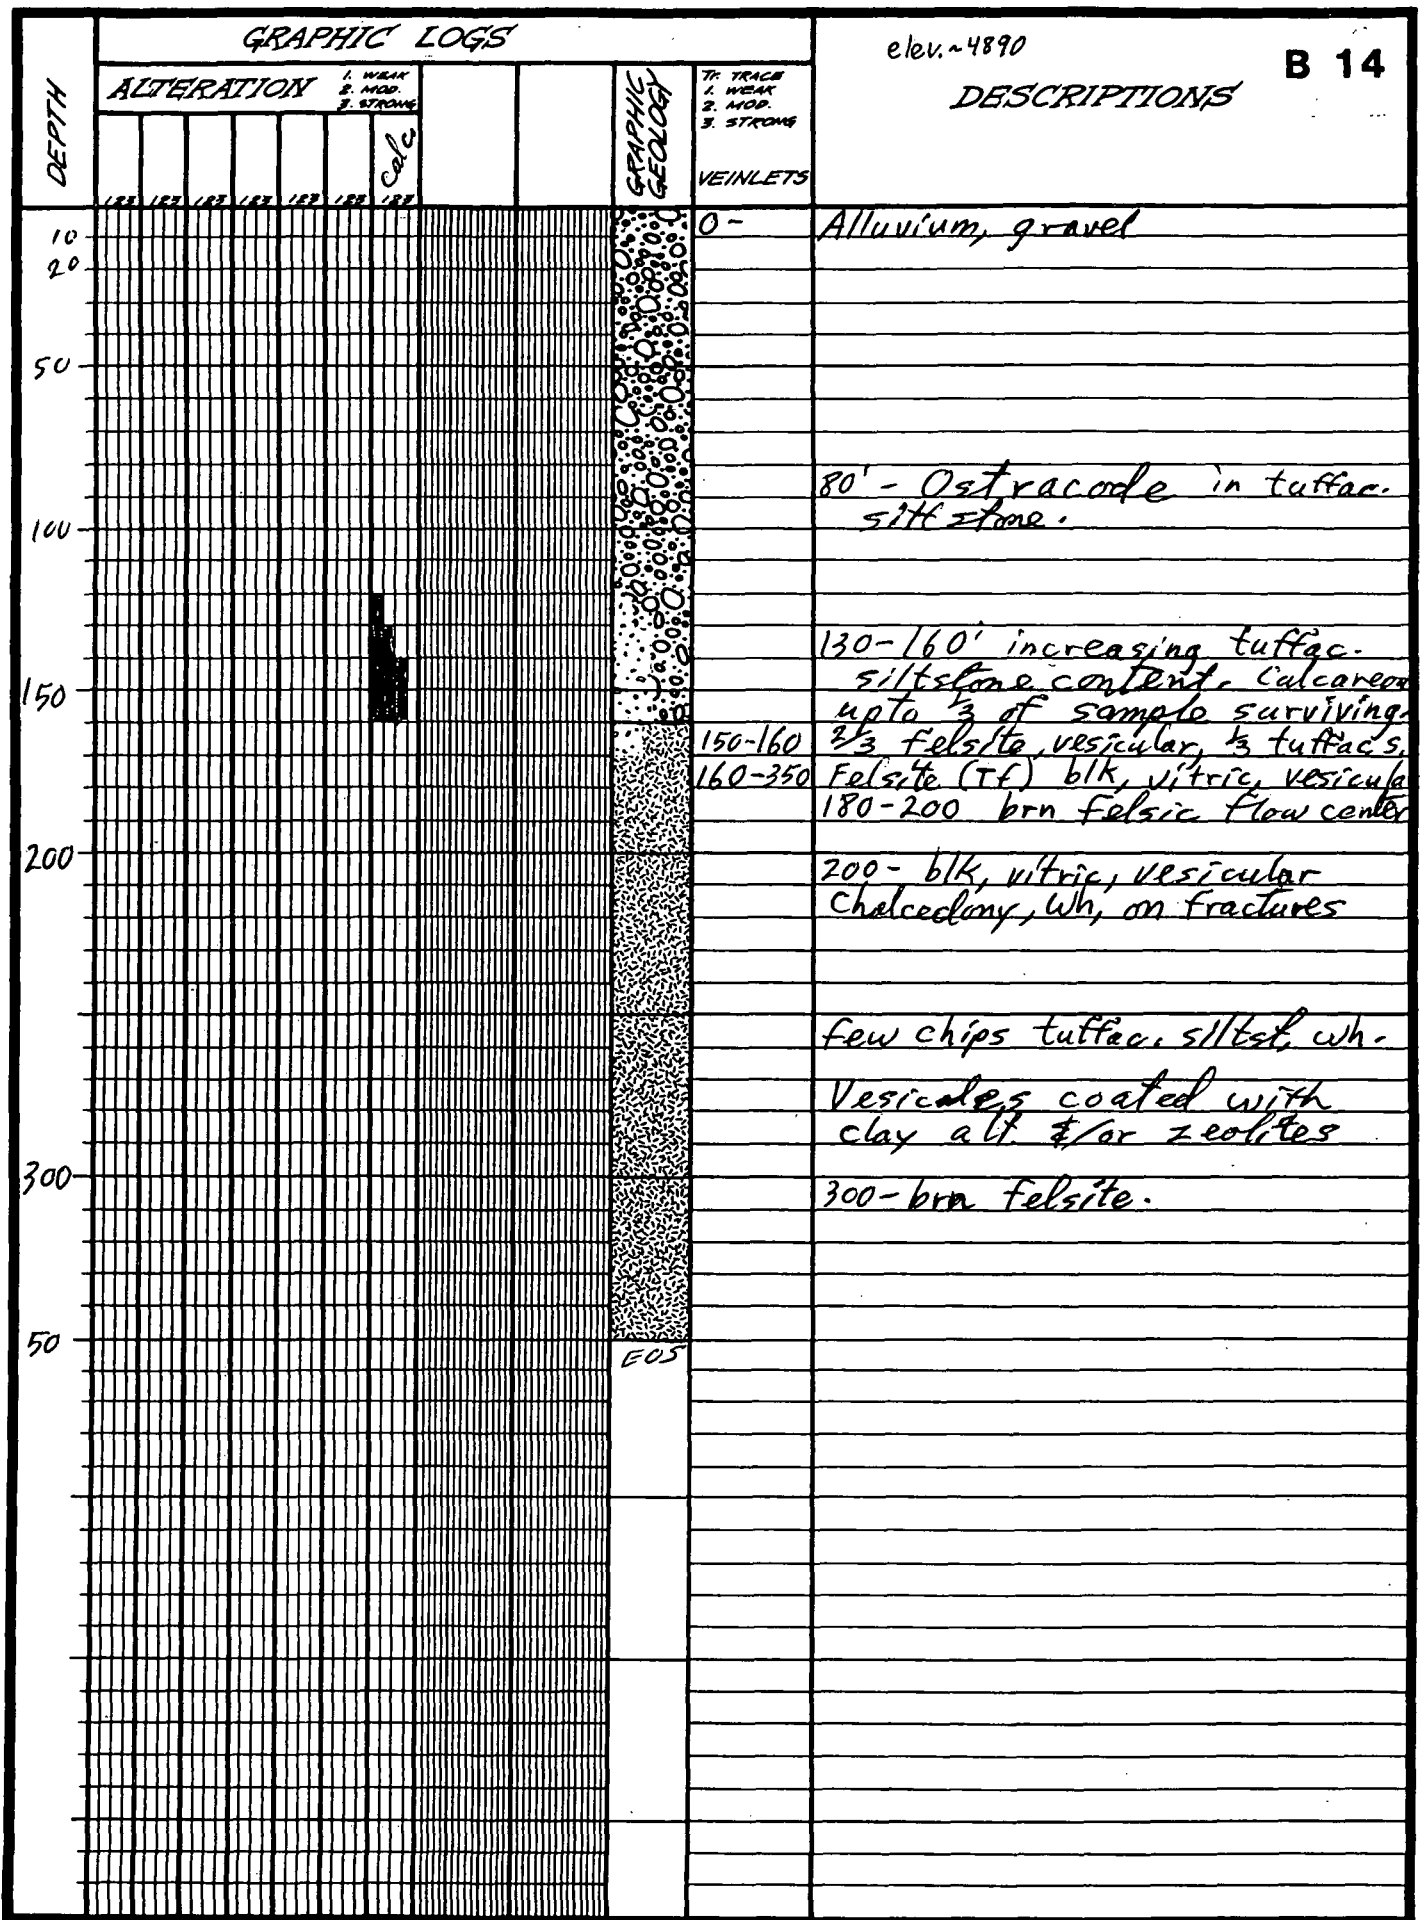 GRAPHIC LOGS
elev.~4890
B 14
DEPTH
ALTERATION
1. WEAK
2. MOD.
3. STRONG
GRAPHIC GEOLOGY
Tr. TRACE
1. WEAK
2. MOD.
3. STRONG
VEINLETS
DESCRIPTIONS
Calc
123 123 123 123 123 123 123
10
20
50
100
150
200
300
50
0- Alluvium, gravel
80' - Ostracode in tuffac.
siltstone.
130-160' increasing tuffac.
siltstone content. Calcareou
upto 2/3 of sample surviving.
150-160 2/3 felsite, vesicular, 1/3 tuffac s.
160-350 Felsite (Tf) blk, vitric, vesicula
180-200 brn felsic flow center
200- blk, vitric, vesicular
Chalcedony, wh, on fractures
few chips tuffac. siltst, wh.
Vesicales coated with
clay alt. &/or zeolites
300- brn felsite.
EOS